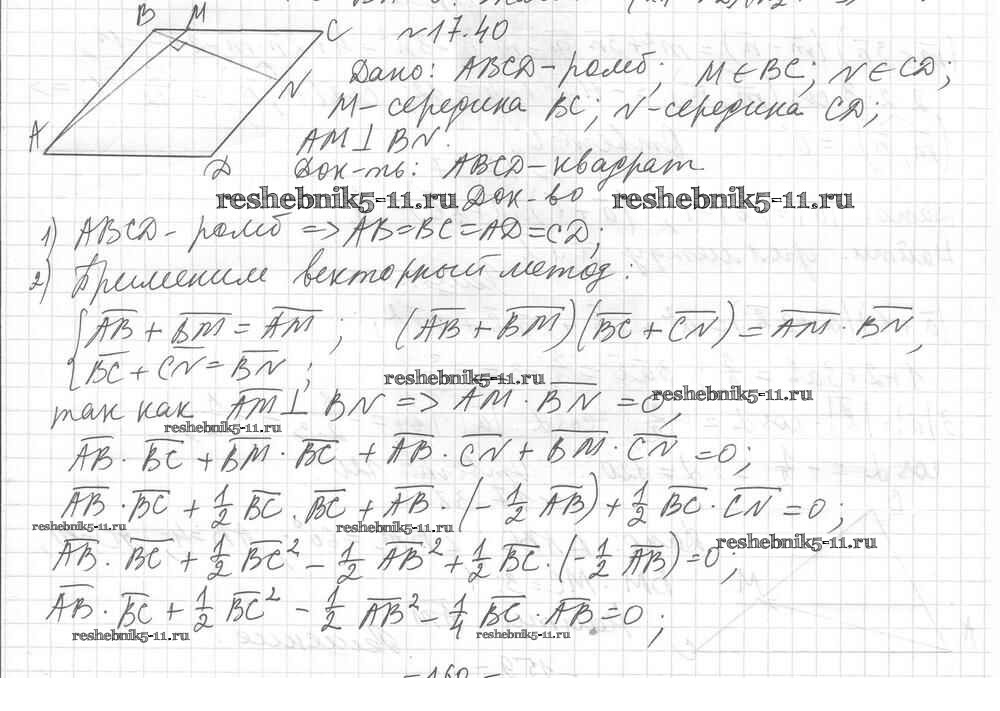 B M C
№17.40
N
Дано: ABCD-ромб; M∈BC; N∈CD;
M-середина BC; N-середина CD;
A
AM⊥BN.
D
Док-ть: ABCD-квадрат
reshebnik5-11.ru Док-во reshebnik5-11.ru
1) ABCD-ромб => AB=BC=AD=CD;
2) Применим векторный метод:
{ A̅B̅ + B̅M̅ = A̅M̅ ; (A̅B̅ + B̅M̅)(B̅C̅ + C̅N̅) = A̅M̅ · B̅N̅,
B̅C̅ + C̅N̅ = B̅N̅ ;
reshebnik5-11.ru
так как A̅M̅ ⊥ B̅N̅ => A̅M̅ · B̅N̅ = 0,
reshebnik5-11.ru reshebnik5-11.ru
A̅B̅ · B̅C̅ + B̅M̅ · B̅C̅ + A̅B̅ · C̅N̅ + B̅M̅ · C̅N̅ = 0;
A̅B̅ · B̅C̅ + 1/2 B̅C̅ · B̅C̅ + A̅B̅ · (- 1/2 A̅B̅) + 1/2 B̅C̅ · C̅N̅ = 0;
reshebnik5-11.ru reshebnik5-11.ru reshebnik5-11.ru
A̅B̅ · B̅C̅ + 1/2 B̅C̅² - 1/2 A̅B̅² + 1/2 B̅C̅ · (- 1/2 A̅B̅) = 0;
A̅B̅ · B̅C̅ + 1/2 B̅C̅² - 1/2 A̅B̅² - 1/4 B̅C̅ · A̅B̅ = 0;
reshebnik5-11.ru reshebnik5-11.ru
- 160 -